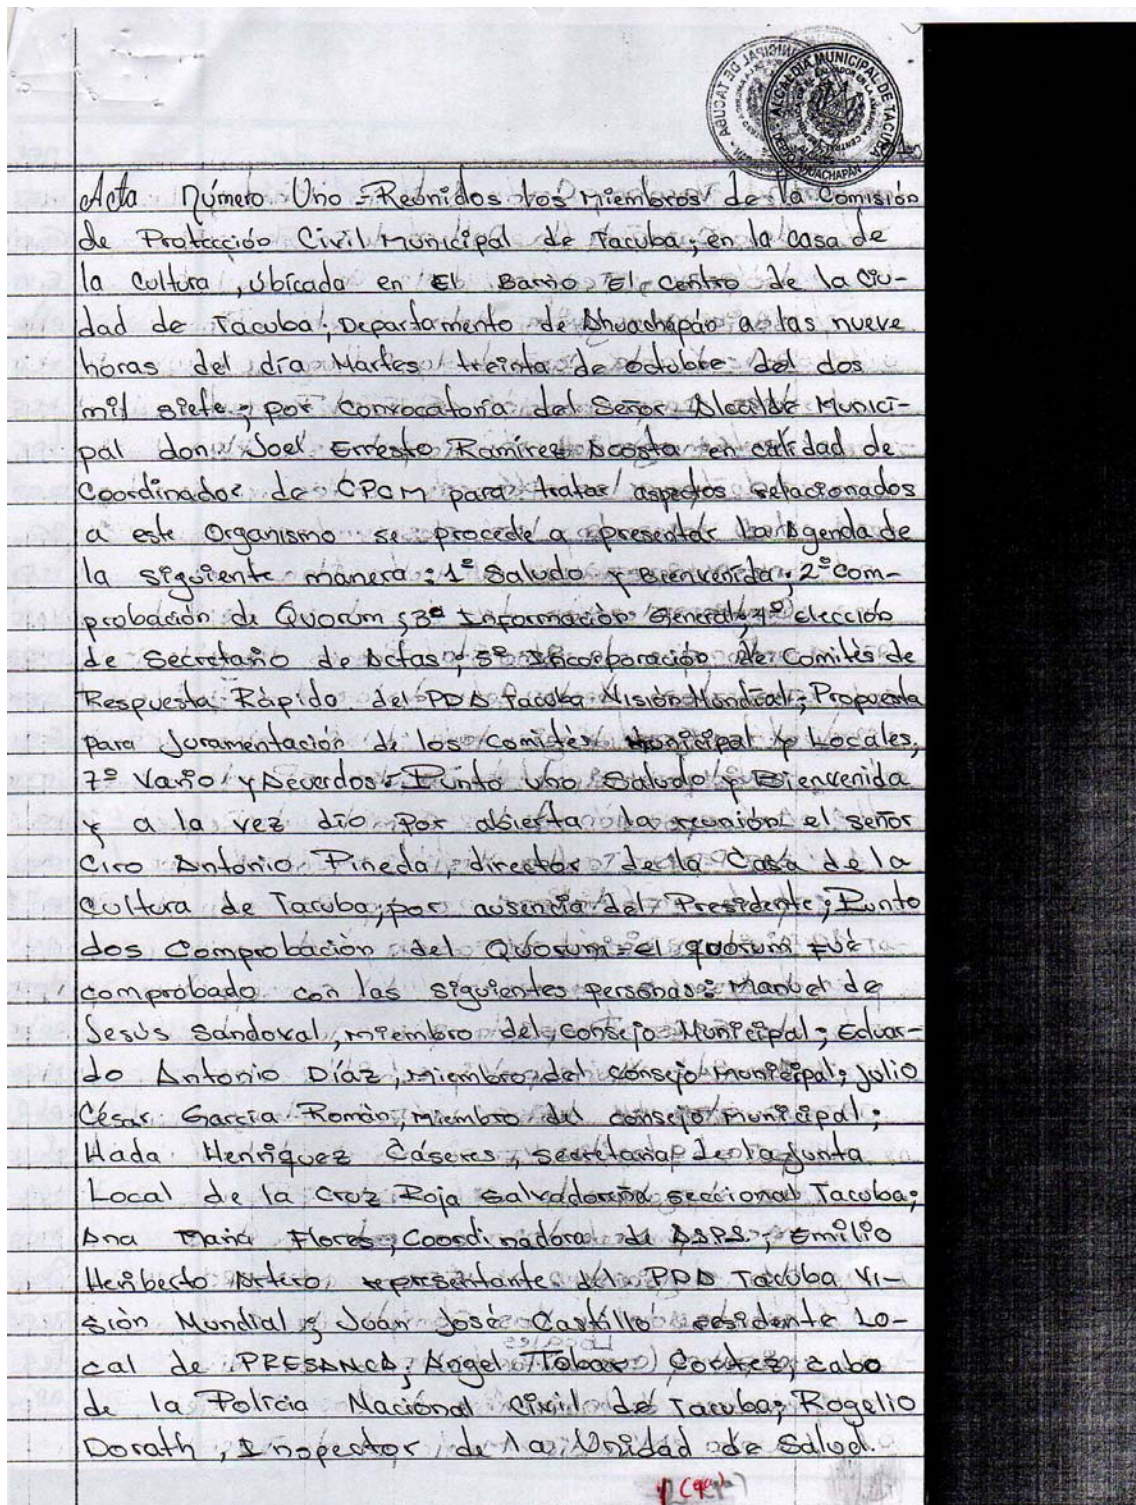 ALCALDIA MUNICIPAL DE TACUBA
DEPTO. AHUACHAPAN
Acta Número Uno = Reúnidos los miembros de la Comisión
de Protección Civil Municipal de Tacuba; en la casa de
la Cultura, Úbicada en El Barrio El Centro de la Ciu-
dad de Tacuba; Departamento de Ahuachapán a las nueve
horas del día Martes treinta de octubre del dos
mil siete; por Convocatoría del Señor Alcalde Munici-
pal don Joel Ernesto Ramírez Acosta en calidad de
Coordinador de CPCM para tratar aspectos relacionados
a este Organismo se procede a presentar la Agenda de
la siguiente manera: 1º Saludo y Bienvenida; 2º Com-
probación de Quorum; 3º Información General; 4º Elección
de Secretario de Actas; 5º Incorporación de Comités de
Respuesta Rápido del PDA Tacuba Visión Mundial; Propuesta
para Juramentación de los Comités Municipal y Locales,
7º Vario y Acuerdos = Punto Uno Saludo y Bienvenida
y a la vez dio por abierta la reunión el señor
Ciro Antonio Pineda, director de la Casa de la
Cultura de Tacuba, por ausencia del Presidente; Punto
dos Comprobación del Quorum = el quorum fué
comprobado con las siguientes personas: Manuel de
Jesús Sandoval, miembro del Consejo Municipal; Eduar-
do Antonio Díaz, miembro del Consejo municipal; Julio
César García Román, miembro del consejo municipal;
Hada Henríquez Cáseres, secretaria de la Junta
Local de la Cruz Roja Salvadoreña seccional Tacuba;
Ana María Flores, Coordinadora de ASPS; Emilio
Heriberto Artero representante del PDA Tacuba Vi-
sión Mundial; Juan José Castillo residente Lo-
cal de PRESANCA; Angel Tobar Cortez, cabo
de la Policía Nacional Civil de Tacuba; Rogelio
Dorath, Inspector de la Unidad de Salud.